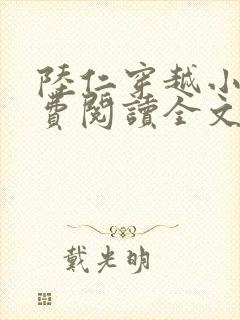 陸仁穿越小
費閱讀全文
戴光明